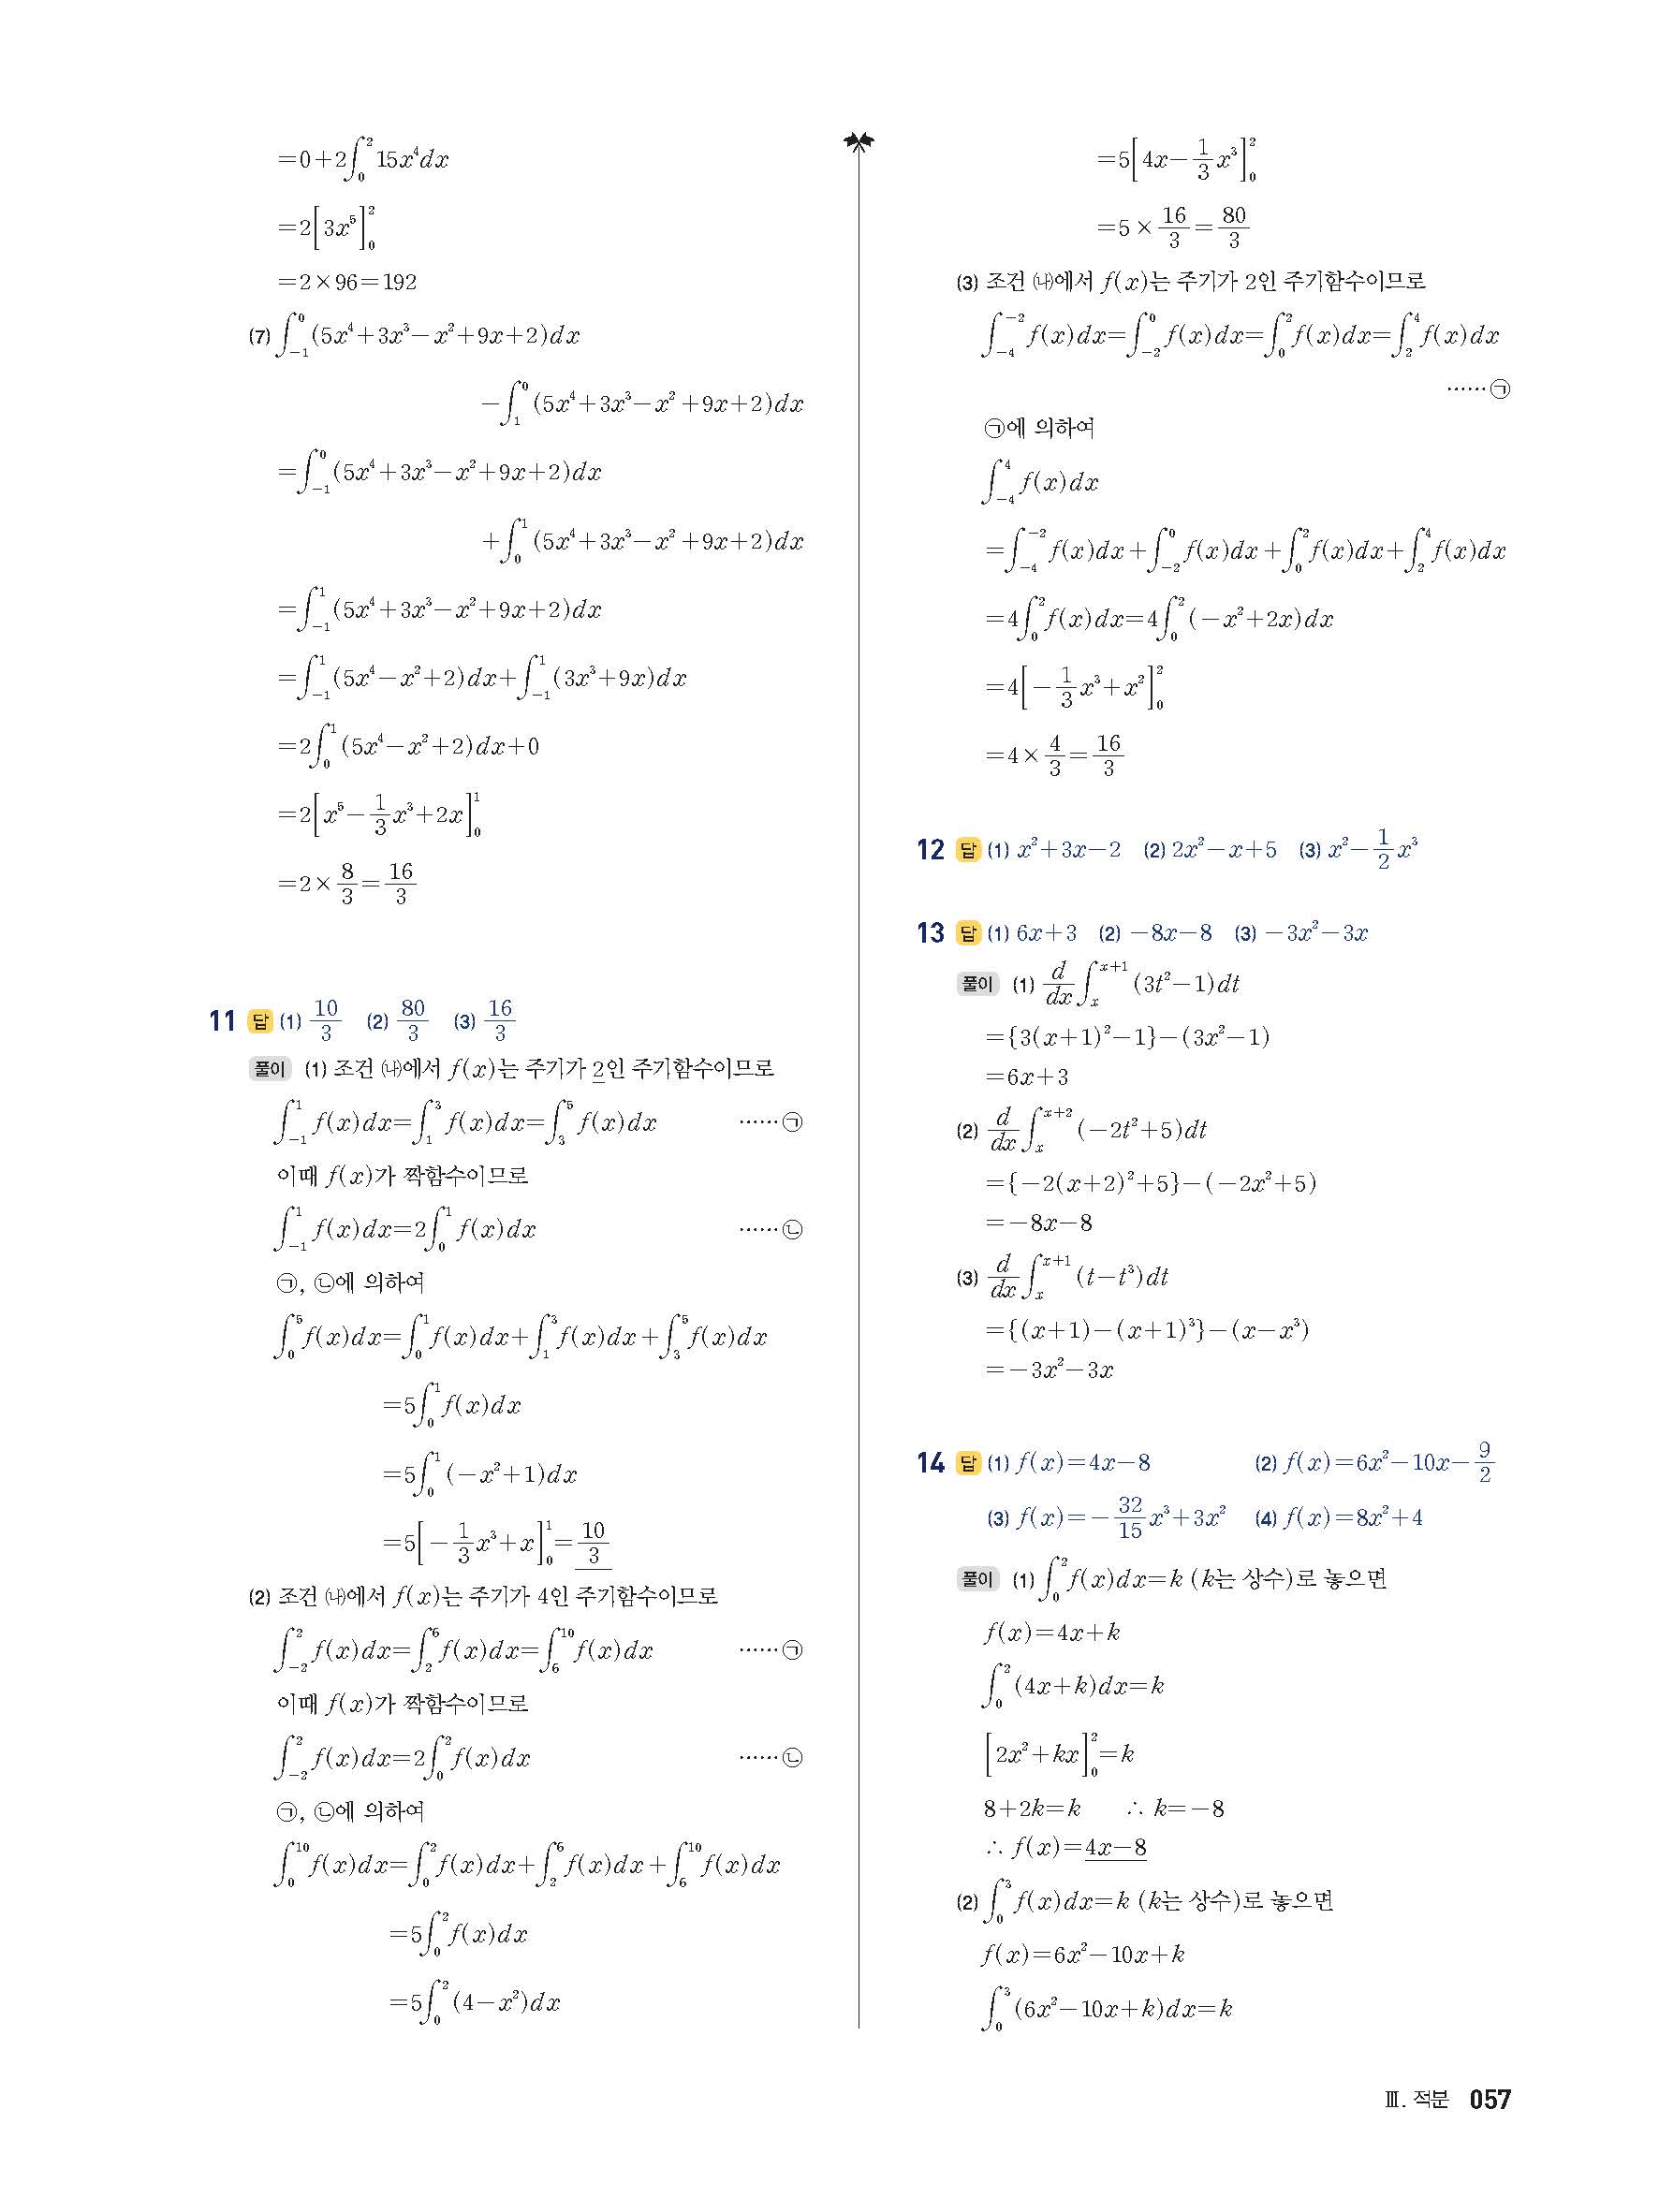 =0+2∫_0^2 15x⁴dx
=2[3x⁵]_0^2
=2×96=192
(7) ∫_{-1}^0 (5x⁴+3x³-x²+9x+2)dx
-∫_1^0 (5x⁴+3x³-x²+9x+2)dx
=∫_{-1}^0 (5x⁴+3x³-x²+9x+2)dx
+∫_0^1 (5x⁴+3x³-x²+9x+2)dx
=∫_{-1}^1 (5x⁴+3x³-x²+9x+2)dx
=∫_{-1}^1 (5x⁴-x²+2)dx+∫_{-1}^1 (3x³+9x)dx
=2∫_0^1 (5x⁴-x²+2)dx+0
=2[x⁵-1/3 x³+2x]_0^1
=2×8/3=16/3
11 답 (1) 10/3 (2) 80/3 (3) 16/3
풀이 (1) 조건 ㈏에서 f(x)는 주기가 2인 주기함수이므로
∫_{-1}^1 f(x)dx=∫_1^3 f(x)dx=∫_3^5 f(x)dx ……㉠
이때 f(x)가 짝함수이므로
∫_{-1}^1 f(x)dx=2∫_0^1 f(x)dx ……㉡
㉠, ㉡에 의하여
∫_0^5 f(x)dx=∫_0^1 f(x)dx+∫_1^3 f(x)dx+∫_3^5 f(x)dx
=5∫_0^1 f(x)dx
=5∫_0^1 (-x²+1)dx
=5[-1/3 x³+x]_0^1=10/3
(2) 조건 ㈏에서 f(x)는 주기가 4인 주기함수이므로
∫_{-2}^2 f(x)dx=∫_2^6 f(x)dx=∫_6^10 f(x)dx ……㉠
이때 f(x)가 짝함수이므로
∫_{-2}^2 f(x)dx=2∫_0^2 f(x)dx ……㉡
㉠, ㉡에 의하여
∫_0^10 f(x)dx=∫_0^2 f(x)dx+∫_2^6 f(x)dx+∫_6^10 f(x)dx
=5∫_0^2 f(x)dx
=5∫_0^2 (4-x²)dx
=5[4x-1/3 x³]_0^2
=5×16/3=80/3
(3) 조건 ㈏에서 f(x)는 주기가 2인 주기함수이므로
∫_{-4}^{-2} f(x)dx=∫_{-2}^0 f(x)dx=∫_0^2 f(x)dx=∫_2^4 f(x)dx
……㉠
㉠에 의하여
∫_{-4}^4 f(x)dx
=∫_{-4}^{-2} f(x)dx+∫_{-2}^0 f(x)dx+∫_0^2 f(x)dx+∫_2^4 f(x)dx
=4∫_0^2 f(x)dx=4∫_0^2 (-x²+2x)dx
=4[-1/3 x³+x²]_0^2
=4×4/3=16/3
12 답 (1) x²+3x-2 (2) 2x²-x+5 (3) x²-1/2 x³
13 답 (1) 6x+3 (2) -8x-8 (3) -3x²-3x
풀이 (1) d/dx ∫_x^{x+1} (3t²-1)dt
={3(x+1)²-1}-(3x²-1)
=6x+3
(2) d/dx ∫_x^{x+2} (-2t²+5)dt
={-2(x+2)²+5}-(-2x²+5)
=-8x-8
(3) d/dx ∫_x^{x+1} (t-t³)dt
={(x+1)-(x+1)³}-(x-x³)
=-3x²-3x
14 답 (1) f(x)=4x-8 (2) f(x)=6x²-10x-9/2
(3) f(x)=-32/15 x³+3x² (4) f(x)=8x²+4
풀이 (1) ∫_0^2 f(x)dx=k (k는 상수)로 놓으면
f(x)=4x+k
∫_0^2 (4x+k)dx=k
[2x²+kx]_0^2=k
8+2k=k ∴ k=-8
∴ f(x)=4x-8
(2) ∫_0^3 f(x)dx=k (k는 상수)로 놓으면
f(x)=6x²-10x+k
∫_0^3 (6x²-10x+k)dx=k
Ⅲ. 적분 057